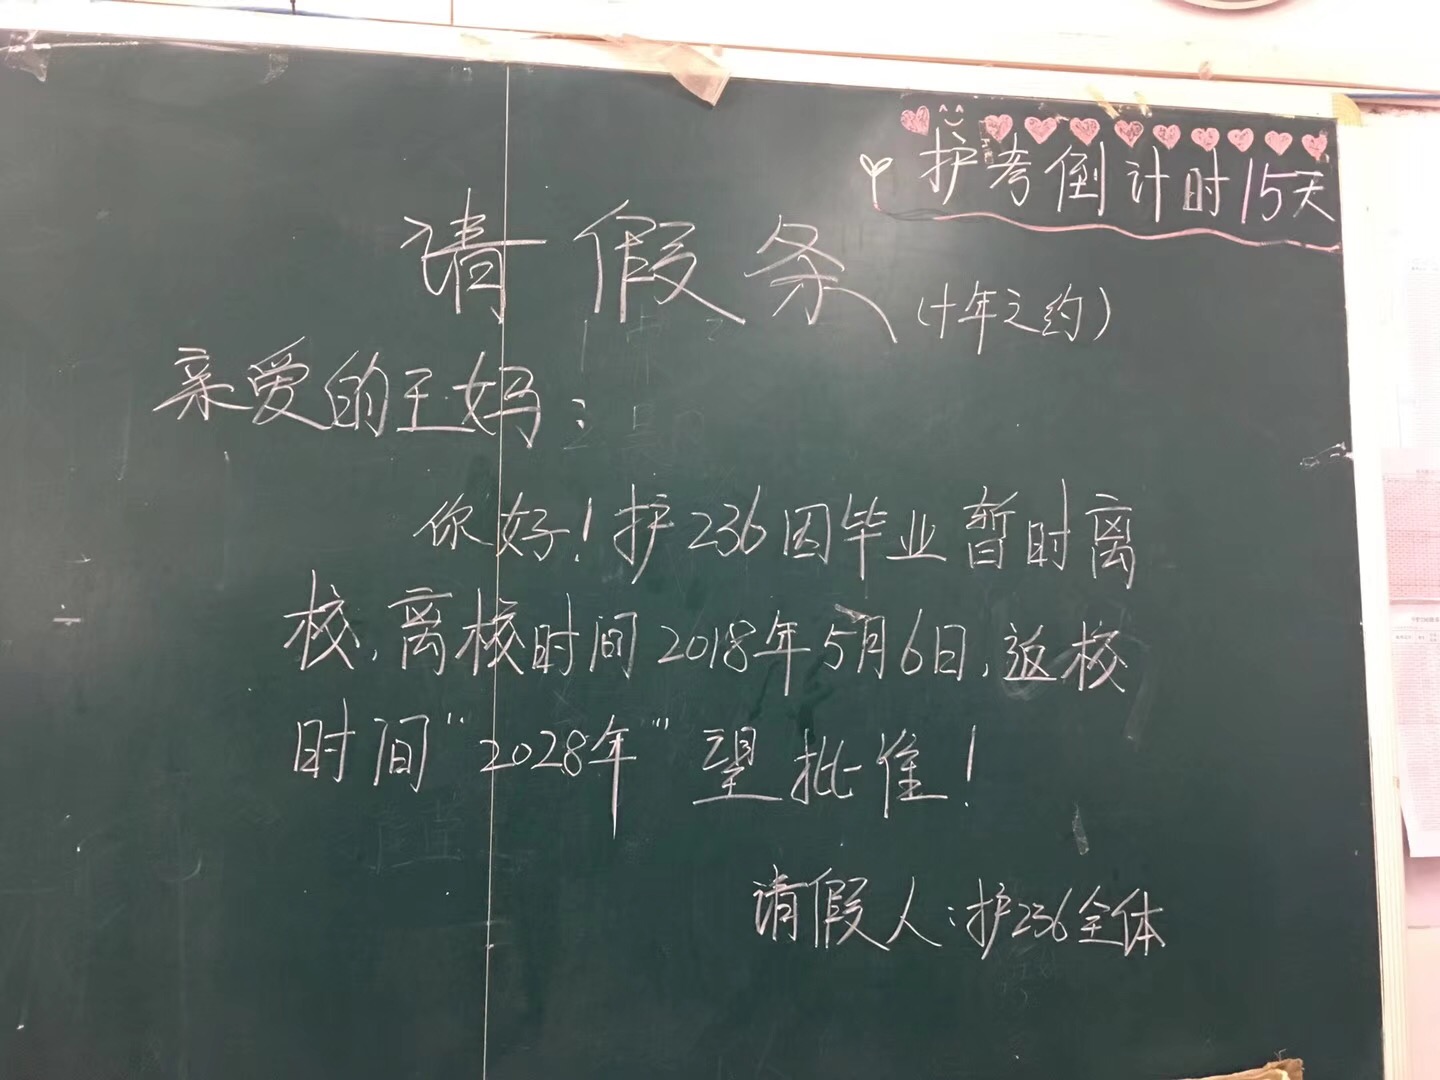 护考倒计时15天
请假条(十年之约)
亲爱的王妈:
你好!护236因毕业暂时离
校,离校时间2018年5月6日,返校
时间"2028年"望批准!
请假人:护236全体